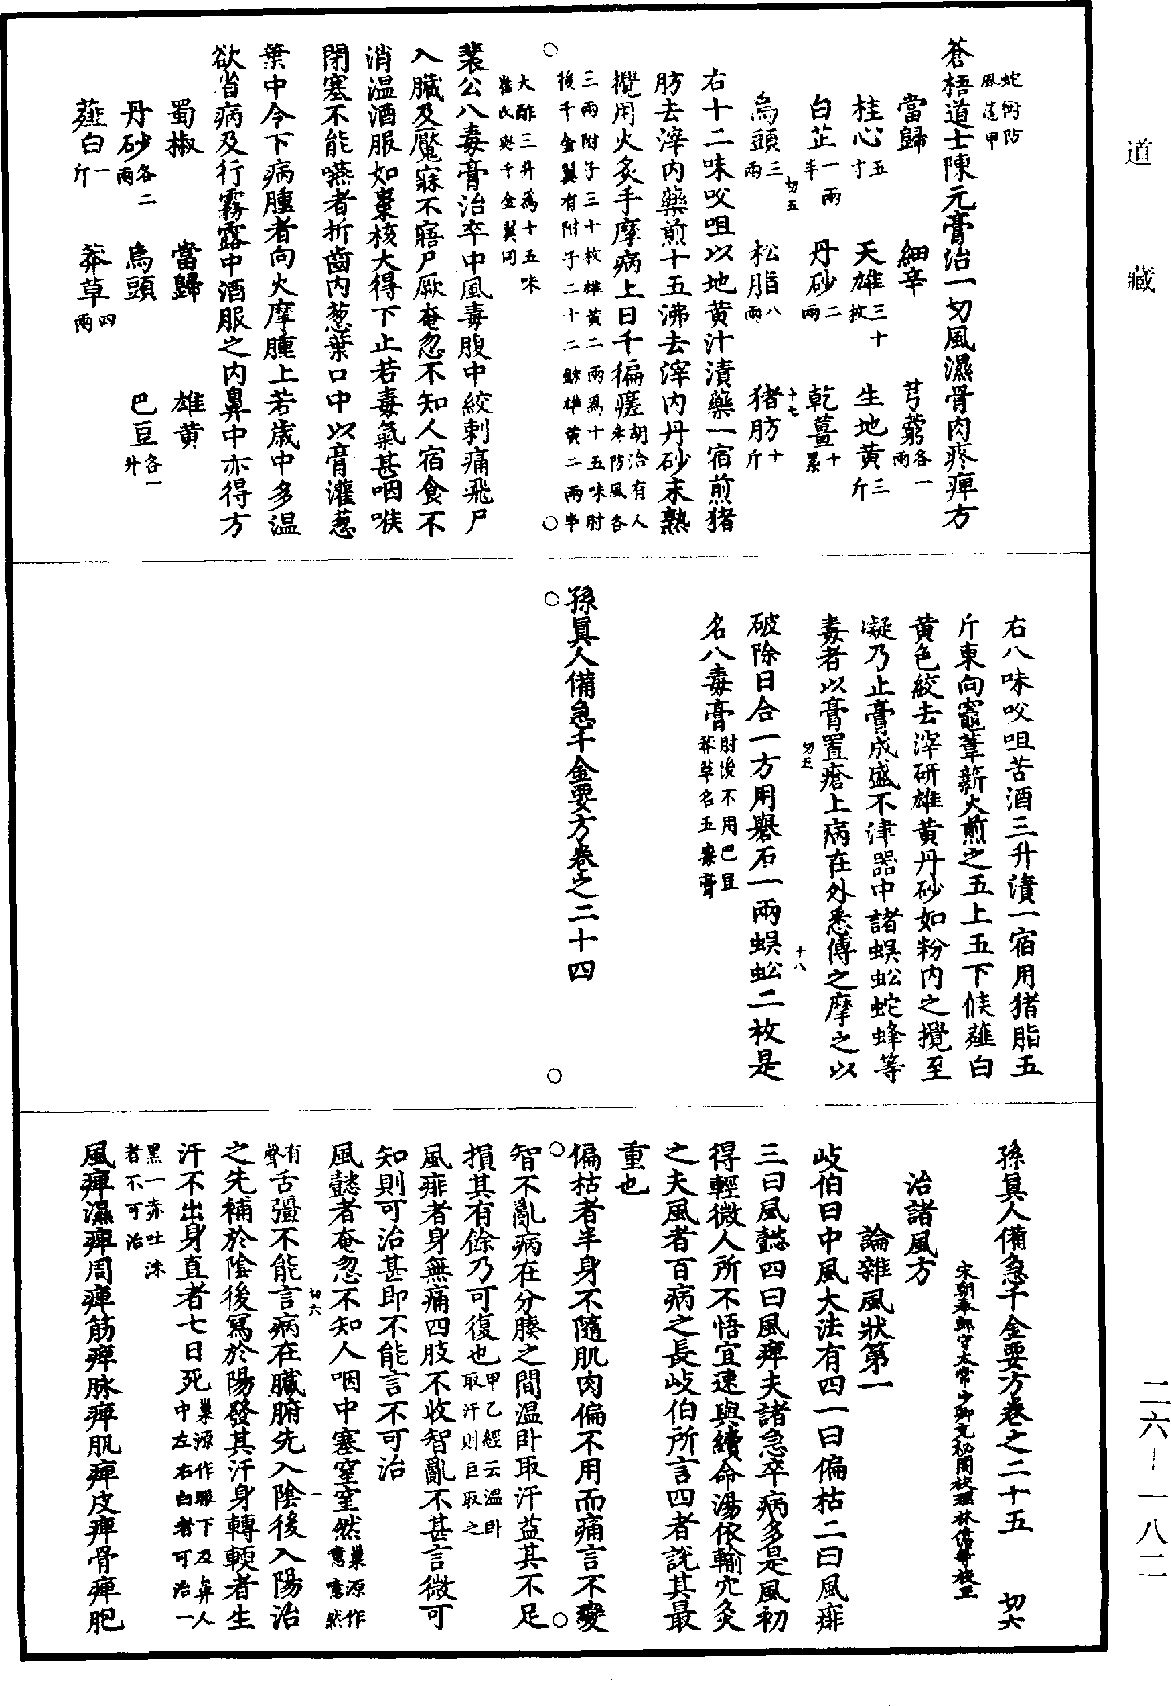 道藏
蛇銜防
風各甲
蒼梧道士陳元膏治一切風濕骨肉疼痺方
當歸　細辛　芎藭各一兩
桂心五寸　天雄三十枚　生地黃三斤
白芷一兩半　丹砂二兩　乾薑十累
切五　十七
烏頭三兩　松脂八兩　猪肪十斤
右十二味㕮咀以地黃汁漬藥一宿煎猪
肪去滓内藥煎十五沸去滓内丹砂末熟
攪用火炙手摩病上日千徧瘥胡洽有人參防風各
三兩附子三十枚雄黃二兩爲十五味肘
後千金翼有附子二十二銖雄黃二兩半
大酢三升爲十五味
崔氏與千金翼同
裴公八毒膏治卒中風毒腹中絞刺痛飛尸
入臟及魘寐不寤尸厥奄忽不知人宿食不
消温酒服如棗核大得下止若毒氣甚咽喉
閉塞不能嚥者折齒内葱葉口中以膏灌葱
葉中令下病腫者向火摩腫上若歲中多温
欲省病及行霧露中酒服之内鼻中亦得方
蜀椒　當歸　雄黃
丹砂各二兩　烏頭　巴豆各一升
薤白一斤　莽草四兩
右八味㕮咀苦酒三升漬一宿用猪脂五
斤東向竈葦薪火煎之五上五下候薤白
黃色絞去滓研雄黃丹砂如粉内之攪至
凝乃止膏成盛不津器中諸蜈蚣蛇蜂等
毒者以膏置瘡上病在外悉傅之摩之以
切五　十八
破除日合一方用礜石一兩蜈蚣二枚是
名八毒膏肘後不用巴豆莽草名五毒膏
孫眞人備急千金要方卷之二十四
孫眞人備急千金要方卷之二十五　切六
宋朝奉郎守太常少卿充秘閣校理林億等校正
治諸風方
論雜風狀第一
岐伯曰中風大法有四一曰偏枯二曰風痱
三曰風懿四曰風痺夫諸急卒病多是風初
得輕微人所不悟宜速與續命湯依輸穴灸
之夫風者百病之長岐伯所言四者說其最
重也
偏枯者半身不隨肌肉偏不用而痛言不變
智不亂病在分腠之間温卧取汗益其不足
損其有餘乃可復也甲乙經云温卧取汗則巨取之
風痱者身無痛四肢不收智亂不甚言微可
知則可治甚即不能言不可治
風懿者奄忽不知人咽中塞窒窒然巢源作噫噫然
切六　一
有聲舌彊不能言病在臟腑先入陰後入陽治
之先補於陰後寫於陽發其汗身轉輭者生
汗不出身直者七日死巢源作眼下及鼻人中左右白者可治一
黑一赤吐沫
者不可治
風痺濕痺周痺筋痺脉痺肌痺皮痺骨痺胞
二六—一八二